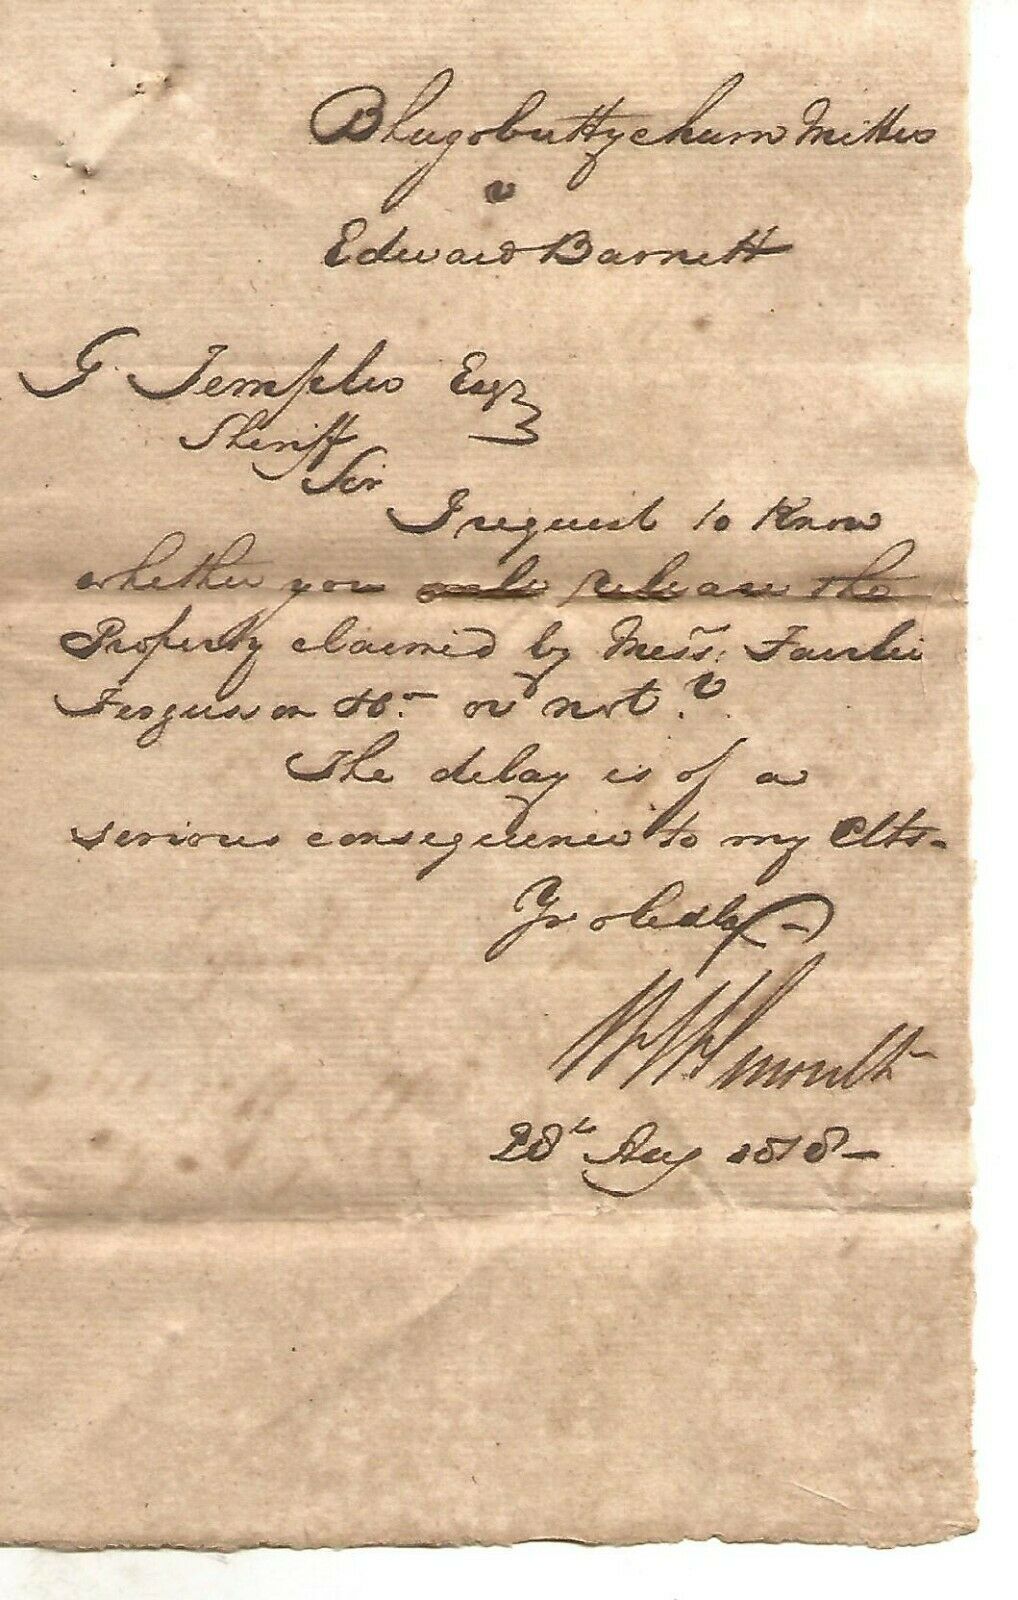 Bhugobuttychurn Mitter
v
Edward Barnett
G. Templer Esqr
Sheriff
Sir
I request to know
whether you release the
Property claimed by Messrs: Fairlie
Fergusson &Co. or not?
The delay is of a
serious consequence to my Clts-
Yr obedly
28th Aug 1818-